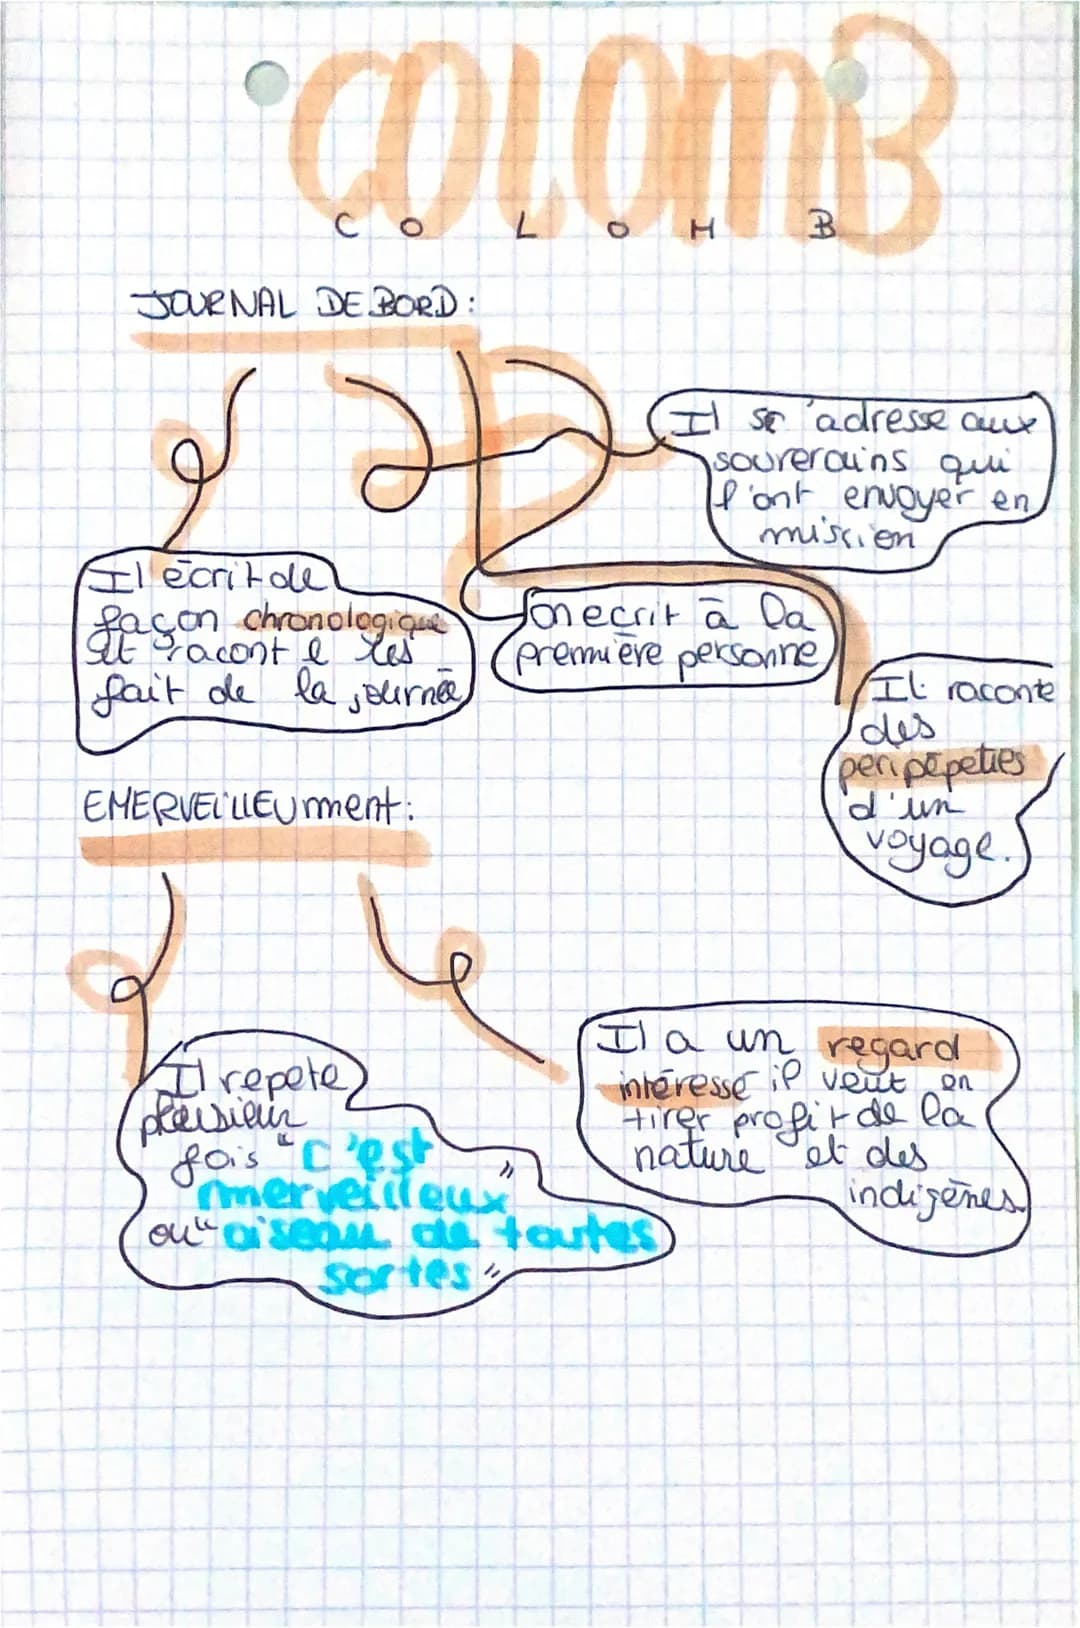 COLOMB
C O L O M B
JOURNAL DE BORD :
Il se 'adresse aux
souverains qui
l'ont envoyer en
mission
Il écrit de
façon chronologique
et racont e les
fait de la journée
on ecrit à la
première personne
Il raconte
des
peripépeties
d'un
voyage.
EMERVEILLEUmment :
Il a un regard
intéressé il veut en
tirer profit de la
nature et des
indigènes
Il repete
plusieur
fois "C'est
merveilleux"
ou "oiseau de toutes
sortes"